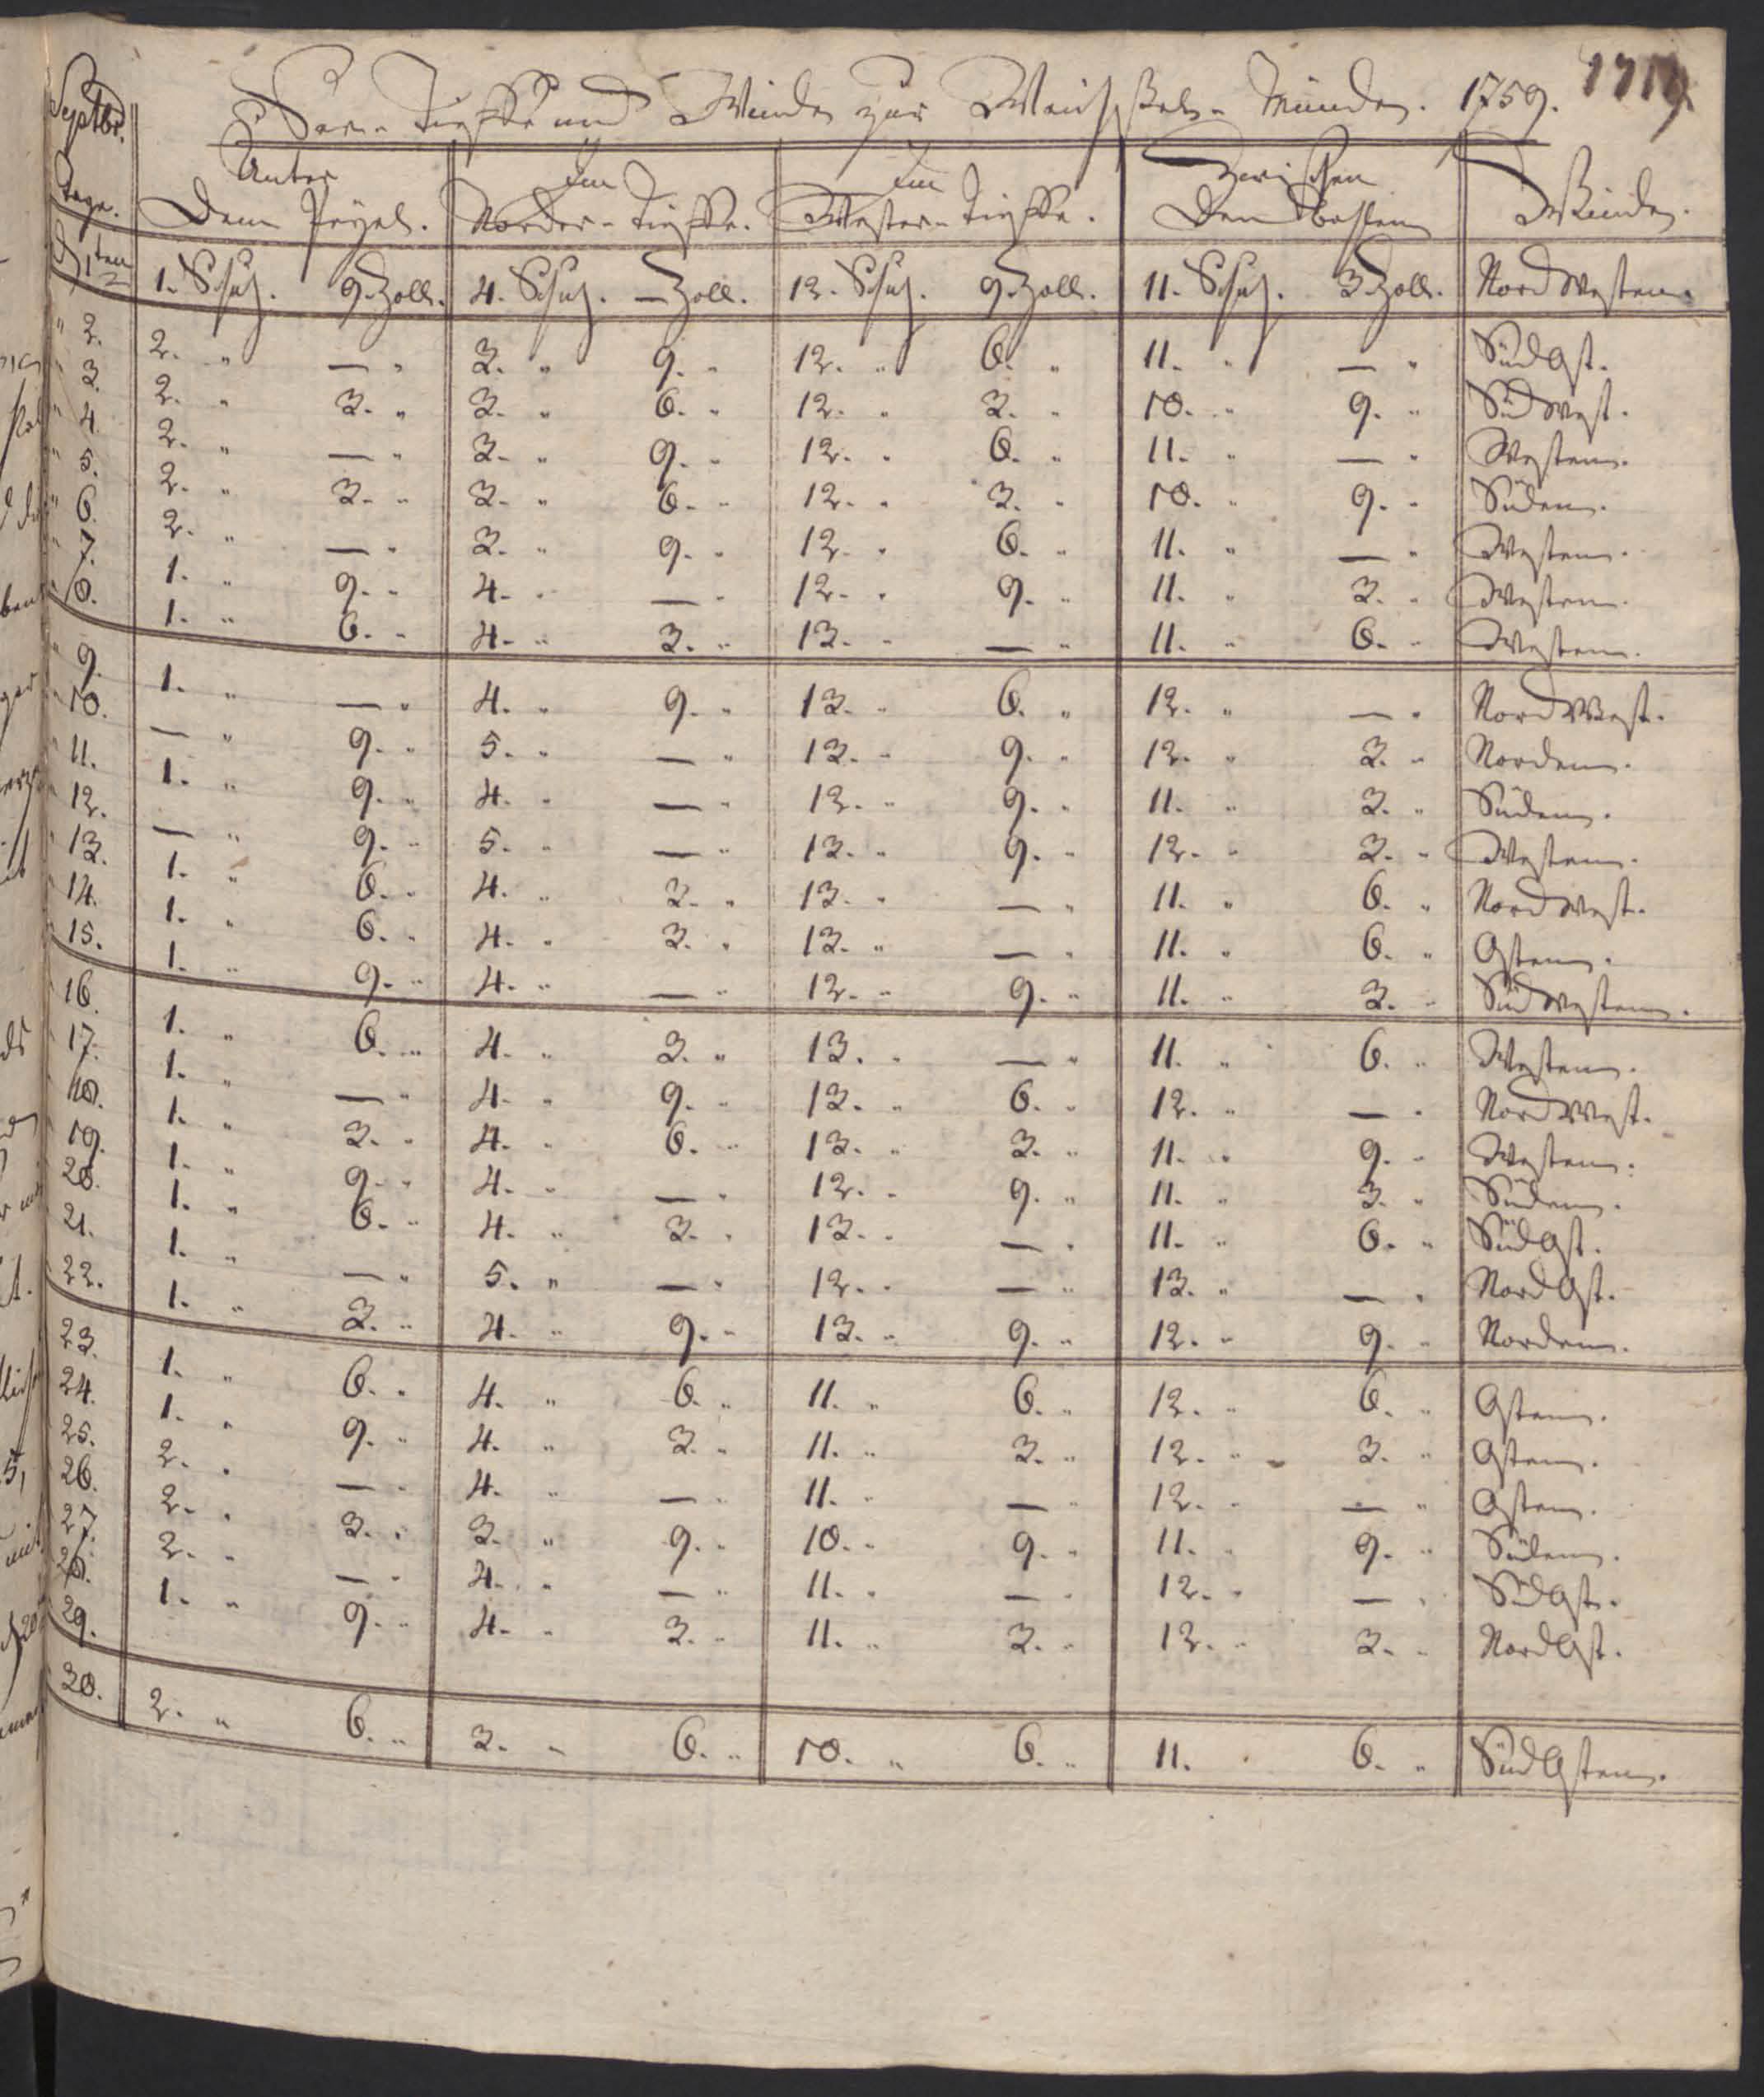 Septbr. Seer-Tieffe und Winde zur Weichselmünde. 1759.
Tage. Unter Dem Peyel. Im Norder-Tieffe. Im Wester-Tieffe. Zwischen Den Winde.
d 1ten 1. Schuh. 9. Zoll. 4. Schuh. — Zoll. 12. Schuh. 9. Zoll. 11. Schuh. 3. Zoll. NordWesten.
" 2. 2. " — " 3. " 9. " 12. " 6. " 11. " — " SüdOst.
" 3. 2. " 3. " 3. " 6. " 12. " 3. " 10. " 9. " Südwest.
" 4. 2. " — " 3. " 9. " 12. " 6. " 11. " — " Westen.
" 5. 2. " 3. " 3. " 6. " 12. " 3. " 10. " 9. " Süden.
" 6. 2. " — " 3. " 9. " 12. " 6. " 11. " — " Westen.
" 7. 1. " 9. " 4. " — " 12. " 9. " 11. " 3. " Westen.
" 8. 1. " 6. " 4. " 3. " 13. " — " 11. " 6. " Westen.
" 9. 1. " — " 4. " 9. " 13. " 6. " 12. " — " NordWest.
" 10. — " 9. " 5. " — " 13. " 9. " 12. " 3. " Norden.
" 11. 1. " 9. " 4. " — " 12. " 9. " 11. " 3. " Süden.
" 12. — " 9. " 5. " — " 13. " 9. " 12. " 3. " Westen.
" 13. 1. " 6. " 4. " 3. " 13. " — " 11. " 6. " Nordwest.
" 14. 1. " 6. " 4. " 3. " 13. " — " 11. " 6. " Osten.
" 15. 1. " 9. " 4. " — " 12. " 9. " 11. " 3. " Südwesten.
" 16. 1. " 6. " 4. " 3. " 13. " — " 11. " 6. " Westen.
" 17. 1. " — " 4. " 9. " 13. " 6. " 12. " — " NordWest.
" 18. 1. " 3. " 4. " 6. " 13. " 3. " 11. " 9. " Westen.
" 19. 1. " 9. " 4. " — " 12. " 9. " 11. " 3. " Süden.
" 20. 1. " 6. " 4. " 3. " 13. " — " 11. " 6. " SüdOst.
" 21. 1. " — " 5. " — " 12. " — " 13. " — " NordOst.
" 22. 1. " 3. " 4. " 9. " 13. " 9. " 12. " 9. " Norden.
" 23. 1. " 6. " 4. " 6. " 11. " 6. " 12. " 6. " Osten.
" 24. 1. " 9. " 4. " 3. " 11. " 3. " 12. " 3. " Osten.
" 25. 2. " — " 4. " — " 11. " — " 12. " — " Osten.
" 26. 2. " 3. " 3. " 9. " 10. " 9. " 11. " 9. " Süden.
" 27. 2. " — " 4. " — " 11. " — " 12. " — " SüdOst.
" 28. 1. " 9. " 4. " 3. " 11. " 3. " 12. " 3. " NordOst.
" 29.
" 30. 2. " 6. " 3. " 6. " 10. " 6. " 11. " 6. " SüdOsten.